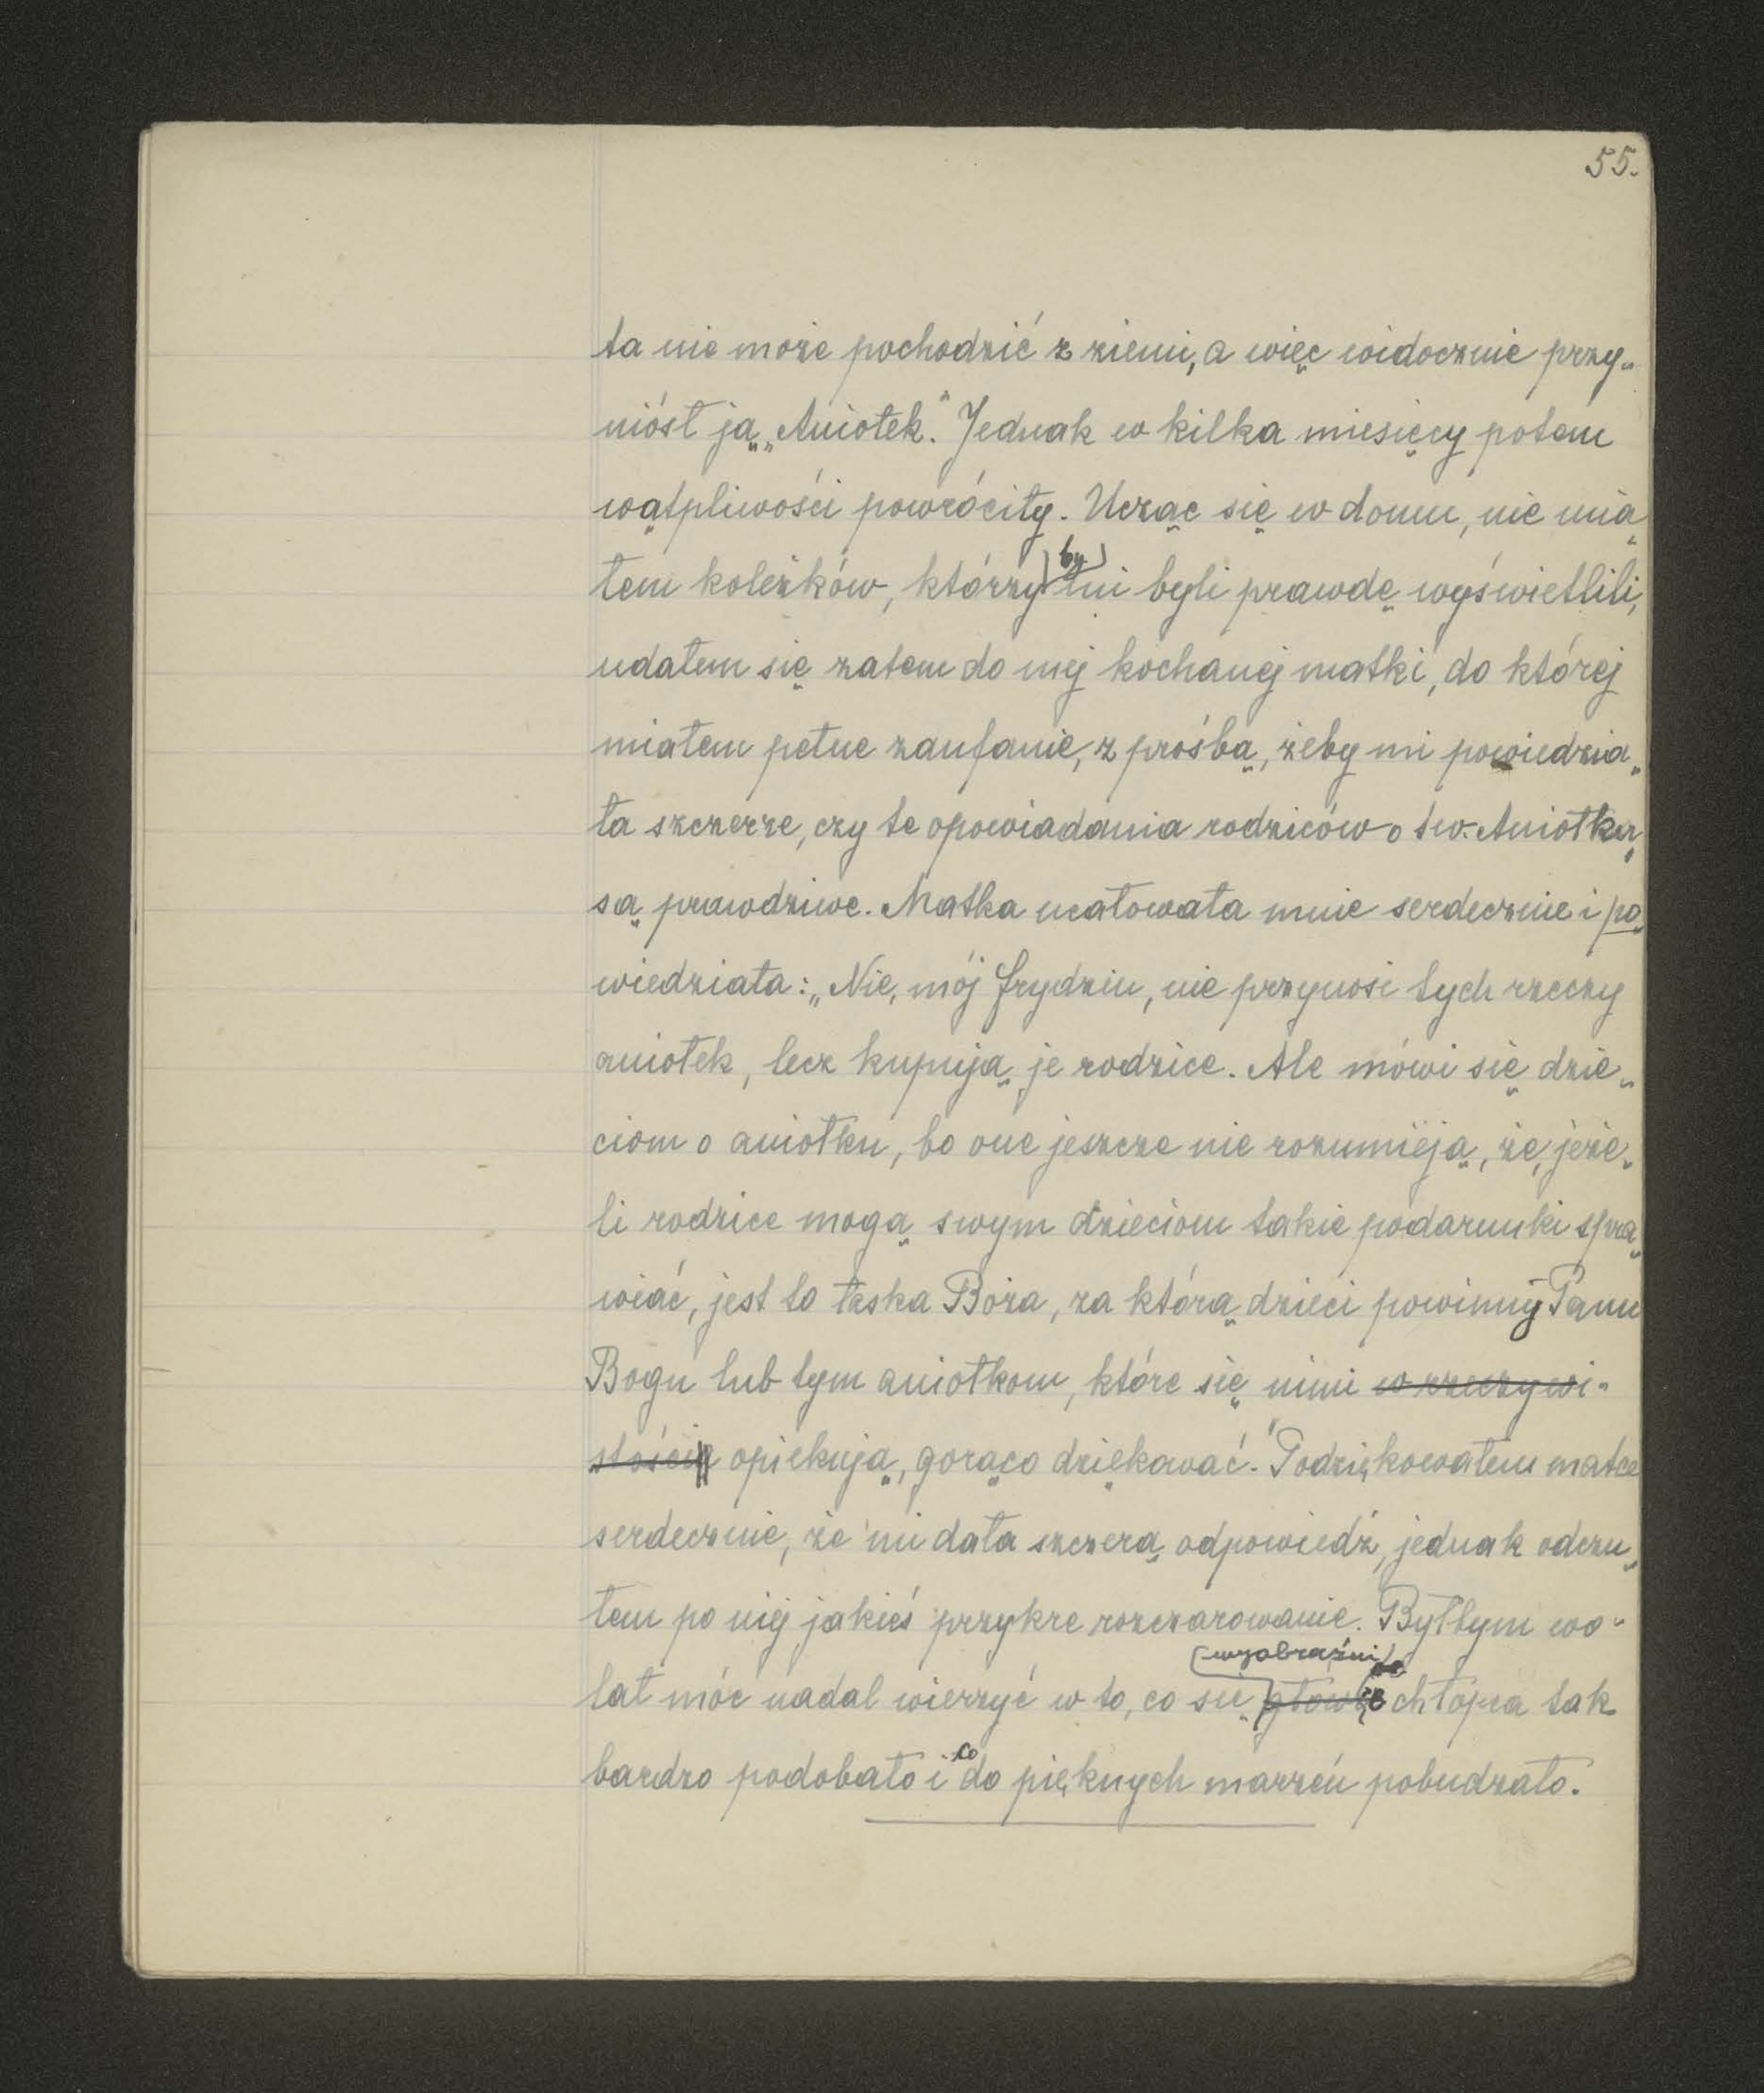 55.
ta nie może pochodzić z ziemi, a więc widocznie przy-
niósł ją „Aniołek." Jednak w kilka miesięcy potem
wątpliwości powróciły. Ucząc się w domu, nie mia-
łem koleżków, którzy by mi byli prawdę wyświetlili,
udałem się zatem do mej kochanej matki, do której
miałem pełne zaufanie, z prośbą, żeby mi powiedzia-
ła szczerze, czy te opowiadania rodziców o św. Aniołku
są prawdziwe. Matka ucałowała mnie serdecznie i po
wiedziała: „Nie, mój frydziu, nie przynosi tych rzeczy
aniołek, lecz kupują je rodzice. Ale mówi się dzie-
ciom o aniołku, bo one jeszcze nie rozumieją, że, jeże-
li rodzice mogą swym dzieciom takie podarunki spra-
wiać, jest to łaska Boża, za którą dzieci powinny Panu
Bogu lub tym aniołkom, które się nimi w rzeczywi-
stości opiekują, gorąco dziękować." Podziękowałem matce
serdecznie, że mi dała szczerą odpowiedź, jednak odczu-
łem po niej jakieś przykre rozczarowanie. Byłbym wo-
wyobraźni
lał móc nadal wierzyć w to, co się głowie chłopca tak
bardzo podobało i co do pięknych marzeń pobudzało.